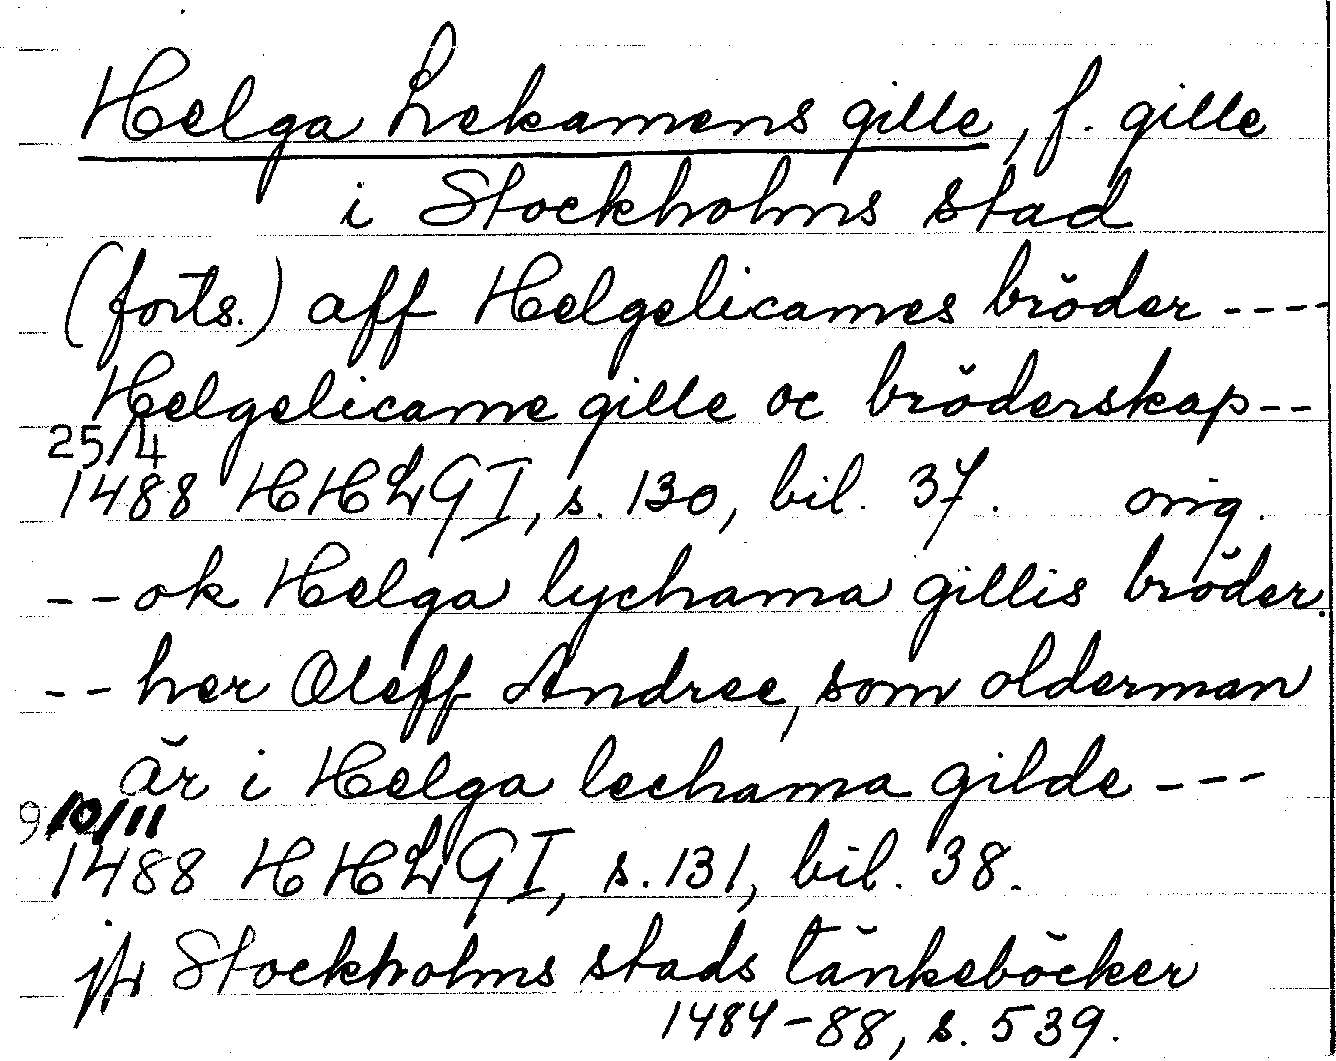 Helga Lekamens gille, f. gille
i Stockholms stad
(forts.) aff Helgelicames bröder ----
Helgelicame gille oc bröderskap--
25/4
1488 HHLGI, s. 130, bil. 37. orig.
--ok Helga lychama gillis bröder.
--her Oleff Andree, som olderman
är i Helga lechama gilde ---
9 10/11
1488 HHLGI, s. 131, bil. 38.
jfr Stockholms stads tänkeböcker
1484-88, s. 539.